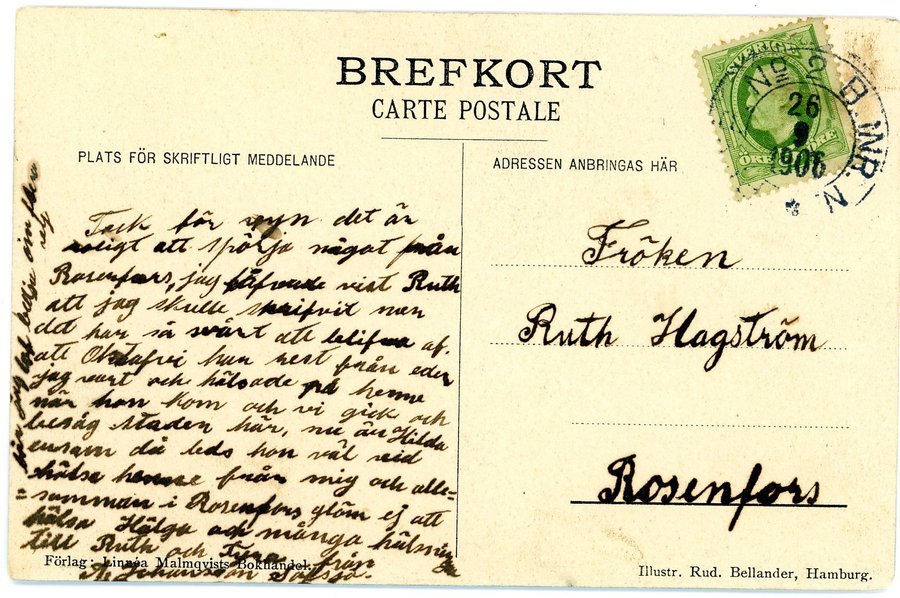 BREFKORT
CARTE POSTALE
PLATS FÖR SKRIFTLIGT MEDDELANDE
ADRESSEN ANBRINGAS HÄR
SVERIGE
ÖRE
26
9
1906
B. INR. N
Tack för vyn det är
roligt att spörja något från
Rosenfors, jag vist Ruth
att jag skulle skrifvit men
det har så svårt att blifva af.
att han rest från eder
jag vart och hälsade på henne
när hon kom och vi gick och
besåg staden här, nu är Hilda
ensam då leds hon väl vid
hälse henne från mig och alle-
samman i Rosenfors glöm ej att
hälsa Hälga och många hälsning
till Ruth och från
A. Johansson
Fröken
Ruth Hagström
Rosenfors
Förlag: Linnéa Malmqvists Bokhandel.
Illustr. Rud. Bellander, Hamburg.